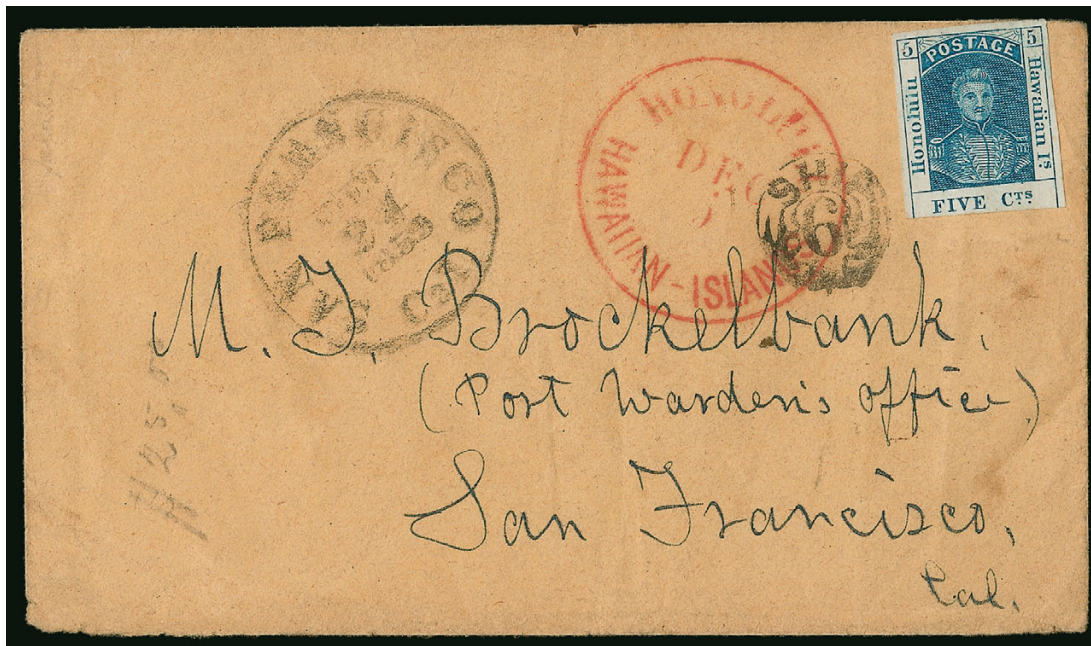 5 POSTAGE 5
Honolulu
Hawaiian Is.
FIVE CTS
HONOLULU
DEC
HAWAIIAN - ISLANDS
SHIP
6
SAN FRANCISCO CAL
24
1859
M. J. Brockelbank,
(Port Warden's office)
San Francisco,
Cal.